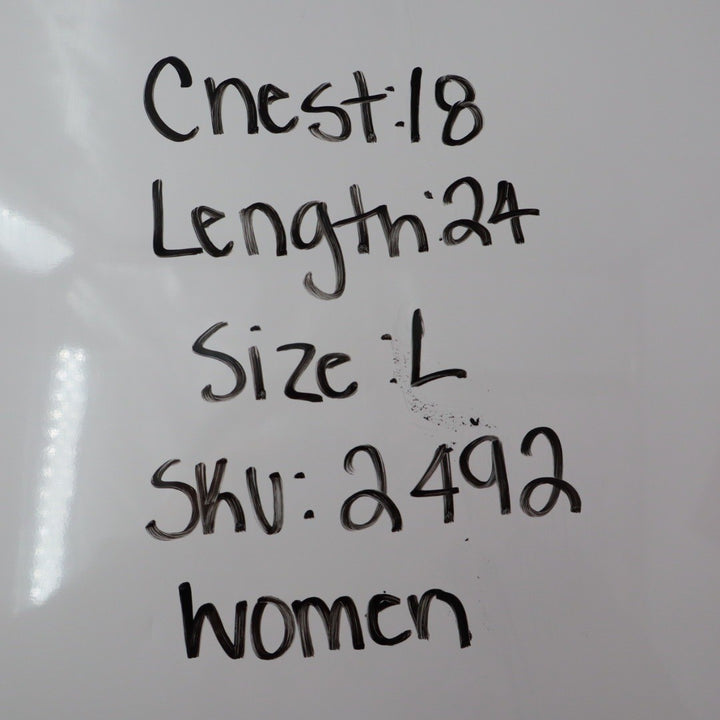 Chest:18
Length:24
Size:L
SKU:2492
women